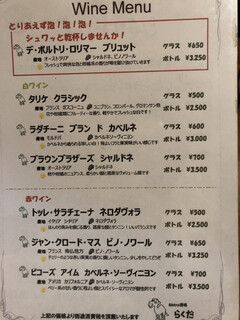 Wine Menu
とりあえず泡！泡！泡！
シュワッと乾杯しませんか！
デ・ボルトリ・ロリマー ブリュット グラス ¥650
産地 オーストラリア シャルドネ、ピノノワール ボトル ¥3.250
白ワイン
タリケ クラシック グラス ¥500
産地 フランス ガスコーニュ ユニブラン、コロンバール、グロマンサン他 ボトル ¥2.500
ラダチーニ ブラン ド カベルネ グラス ¥600
産地 モルドバ カベルネソーヴィニヨン ボトル ¥3.000
ブラウンブラザーズ シャルドネ グラス ¥700
産地 オーストラリア シャルドネ ボトル ¥3.500
赤ワイン
トッレ・サラチェーナ ネロダヴォラ グラス ¥500
産地 イタリア シチリア ネロダヴォラ ボトル ¥2.500
ジャン・クロード・マス ピノ・ノワール グラス ¥650
産地 フランス 南仏 ピノ・ノワール ボトル ¥3.250
ビコーズ アイム カベルネ・ソーヴィニヨン グラス ¥700
産地 アメリカ カリフォルニア カベルネ・ソーヴィニヨン ボトル ¥3.500
上記の価格より別途消費税を頂戴いたします
らくだ